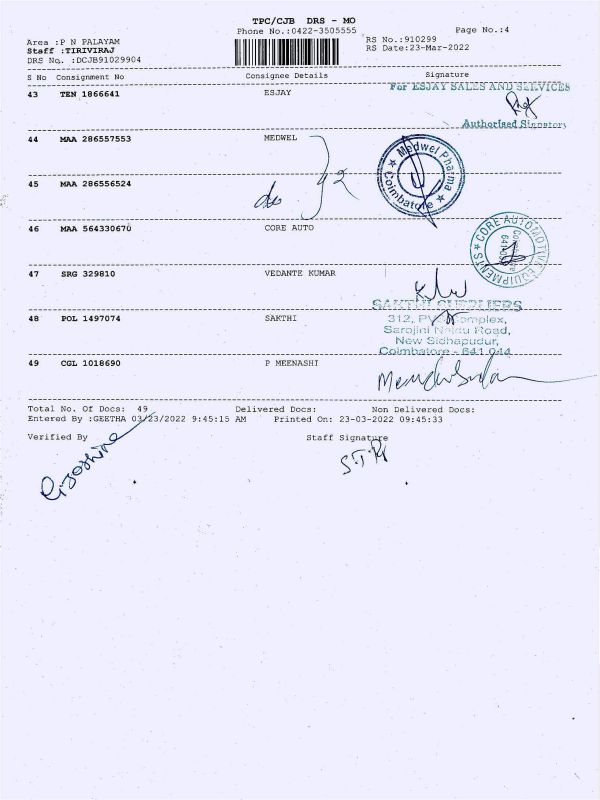 TPC/CJB DRS - MO
Phone No.:0422-3505555
Page No.:4
Area :P N PALAYAM
RS No.:910299
Staff :TIRIVIRAJ
RS Date:23-Mar-2022
DRS No. :DCJB91029904
S No Consignment No Consignee Details Signature
43 TEN 1866641 ESJAY
For ESJAY SALES AND SERVICES
Authorised Signatory
44 MAA 286557553 MEDWEL
Medwel Pharma
Coimbatore
45 MAA 286556524
do
46 MAA 564330670 CORE AUTO
CORE AUTOMOTIVE EQUIPMENTS
Coimbatore
47 SRG 329810 VEDANTE KUMAR
48 POL 1497074 SAKTHI
SAKTHI SUPPLIERS
312, PVS Complex,
Sarojini Naidu Road,
New Sidhapudur,
Coimbatore - 641 044
49 CGL 1018690 P MEENASHI
Total No. Of Docs: 49 Delivered Docs: Non Delivered Docs:
Entered By :GEETHA 03/23/2022 9:45:15 AM Printed On: 23-03-2022 09:45:33
Verified By Staff Signature